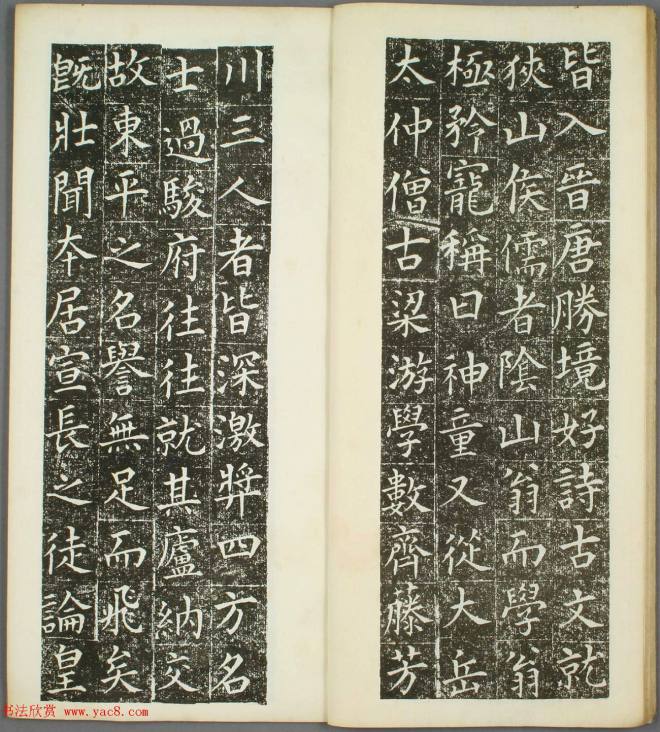 皆入晉唐勝境好詩古文就
狹山侯儒者陰山翁而學翁
極矜寵稱曰神童又從大岳
太仲僧古梁游學數齊藤芳
川三人者皆深激獎四方名
士過駿府往往就其廬納交
故東平之名譽無足而飛矣
既壯聞本居宣長之徒論皇
书法欣赏 www.yac8.com